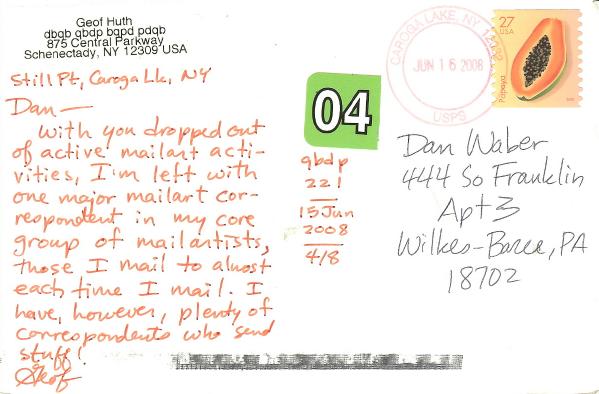 Geof Huth
dbqb qbdp bqpd pdqb
875 Central Parkway
Schenectady, NY 12309 USA
Still Pt, Caroga Lk, NY
Dan—
With you dropped out
of active mailart acti-
vities, I'm left with
one major mailart cor-
respondent in my core
group of mailartists,
those I mail to almost
each time I mail. I
have, however, plenty of
correspondents who send
stuff!
Geof
04
qbdp
221
15 Jun
2008
4/8
CAROGA LAKE, NY
JUN 16 2008
USPS
27
USA
Papaya
Dan Waber
444 So Franklin
Apt 3
Wilkes-Barre, PA
18702